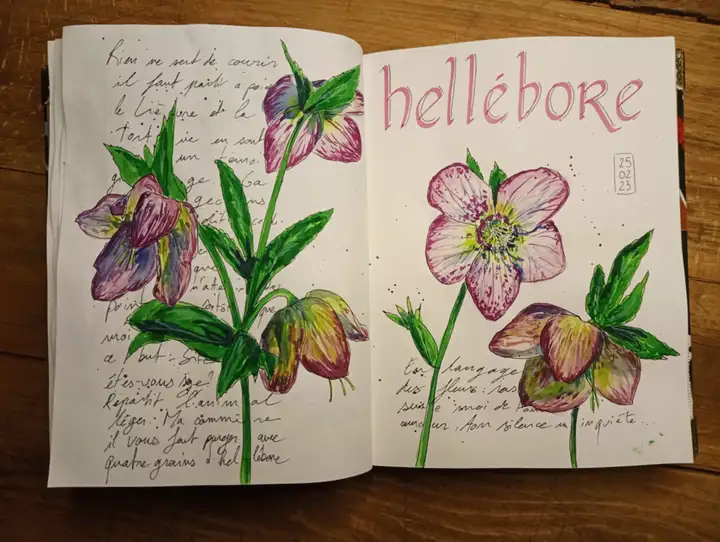 Rien ne sert de courir
il faut partir à poin
le lièvre et la
Tort ue en sont
un témoi
gnage. Ga
geons
dit
que
n'atte
poin sitô que
moi
ce but. Sitô
êtes-vous sage?
Repartit l'animal
léger. Ma commè re
il vous faut purger avec
quatre grains d'hel lébore
hellébore
25
02
23
En langage
des fleurs: ras
sure moi de ton
cœur, ton silence m' inquiète...